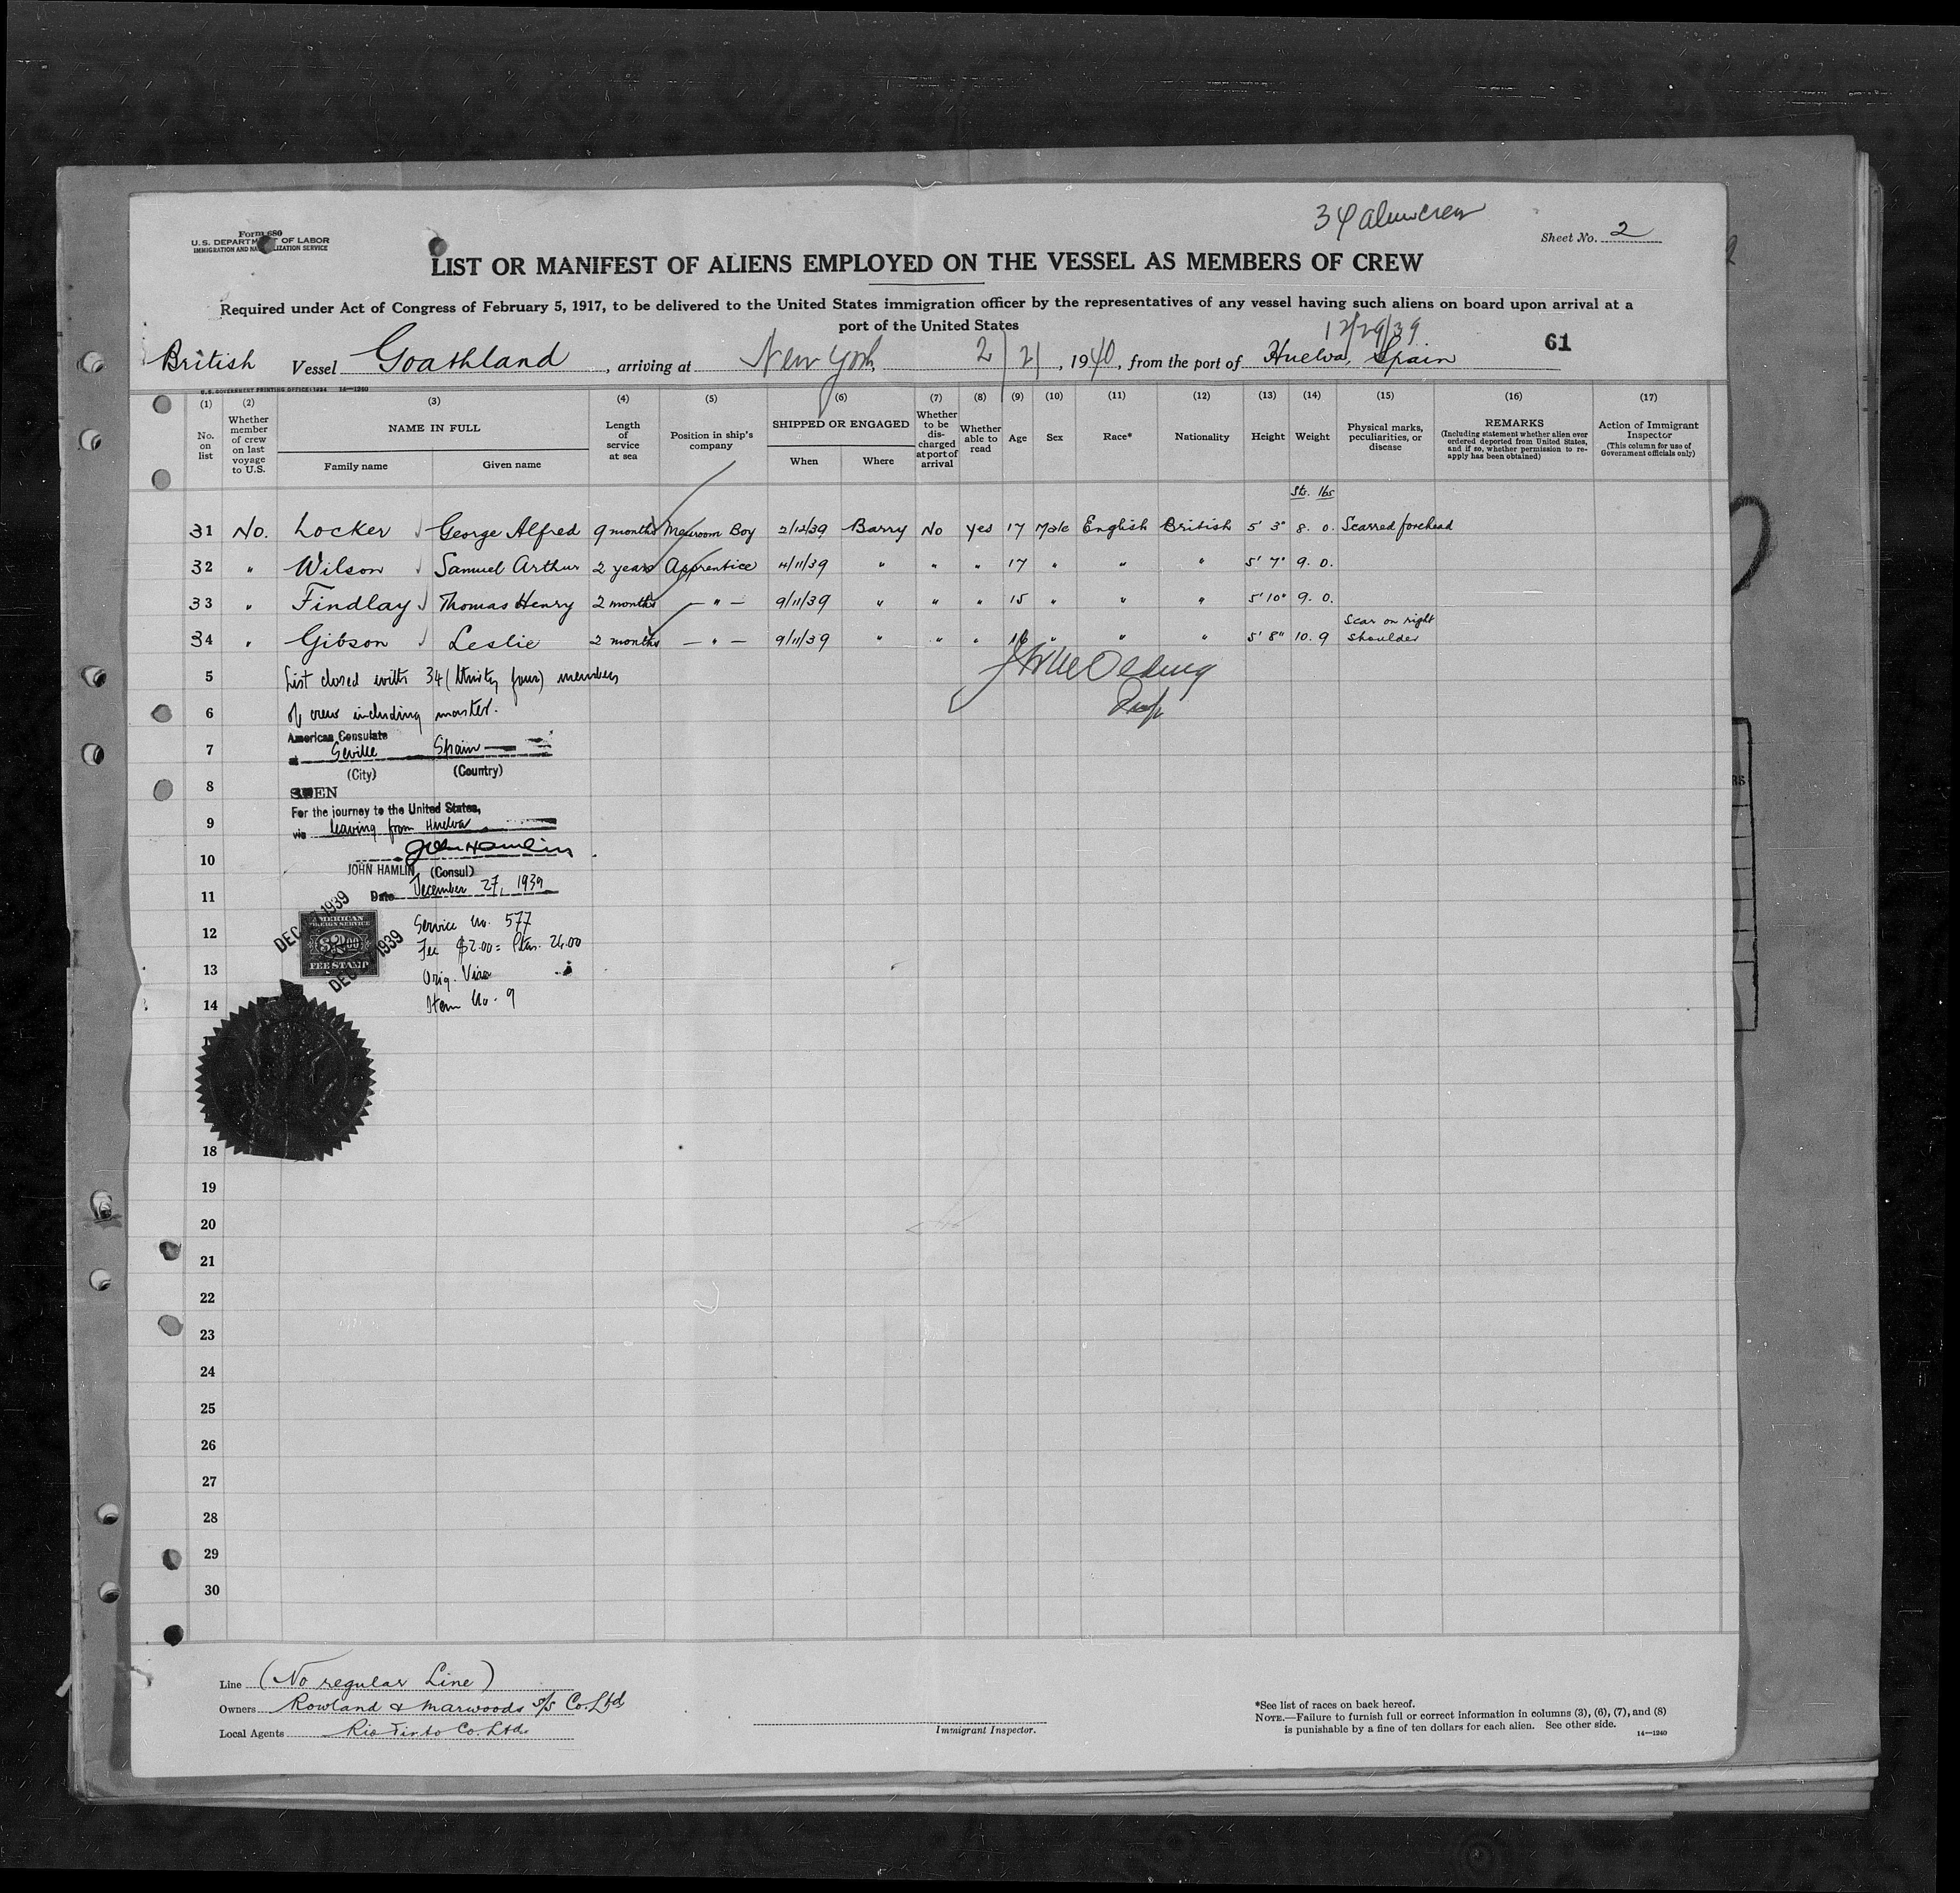 34 alien crew
Form 680
U.S. DEPARTMENT OF LABOR
IMMIGRATION AND NATURALIZATION SERVICE
Sheet No. 2
LIST OR MANIFEST OF ALIENS EMPLOYED ON THE VESSEL AS MEMBERS OF CREW
Required under Act of Congress of February 5, 1917, to be delivered to the United States immigration officer by the representatives of any vessel having such aliens on board upon arrival at a
port of the United States
12/29/39
61
British Vessel Goathland, arriving at New York, 2/2/, 1940, from the port of Huelva, Spain
U.S. GOVERNMENT PRINTING OFFICE: 1934 14—1240
(1) (2) (3) (4) (5) (6) (7) (8) (9) (10) (11) (12) (13) (14) (15) (16) (17)
No. on list
Whether member of crew on last voyage to U.S.
NAME IN FULL
Family name Given name
Length of service at sea
Position in ship's company
SHIPPED OR ENGAGED
When Where
Whether to be discharged at port of arrival
Whether able to read
Age
Sex
Race*
Nationality
Height
Weight
Physical marks, peculiarities, or disease
REMARKS
(Including statement whether alien ever ordered deported from United States, and if so, whether permission to re-apply has been obtained)
Action of Immigrant Inspector
(This column for use of Government officials only)
Sts. lbs
31 No. Locker George Alfred 9 months Messroom Boy 2/12/39 Barry No Yes 17 Male English British 5' 3" 8. 0. Scarred forehead
32 " Wilson Samuel Arthur 2 years Apprentice 4/11/39 " " " 17 " " " 5' 7" 9. 0.
33 " Findlay Thomas Henry 2 months — " — 9/11/39 " " " 15 " " " 5' 10" 9. 0.
34 " Gibson Leslie 2 months — " — 9/11/39 " " " 16 " " " 5' 8" 10. 9 Scar on right shoulder
5 List closed with 34 (thirty four) members
6 of crew including master.
American Consulate
7 at Seville Spain
(City) (Country)
8 SEEN
For the journey to the United States,
9 via leaving from Huelva
10 John Hamlin
JOHN HAMLIN (Consul)
11 Date December 27, 1939
DEC 1939
AMERICAN
FOREIGN SERVICE
$2.00
FEE STAMP
DEC 1939
12 Service No. 577
Fee $2.00 = Ptas. 26.00
13 Orig. Visa
14 Item No. 9
18
19
20
21
22
23
24
25
26
27
28
29
30
Line (No regular Line)
Owners Rowland & Marwoods S/S Co. Ltd
Local Agents Rio Tinto Co. Ltd.
Immigrant Inspector.
*See list of races on back hereof.
NOTE.—Failure to furnish full or correct information in columns (3), (6), (7), and (8)
is punishable by a fine of ten dollars for each alien. See other side.
14—1240